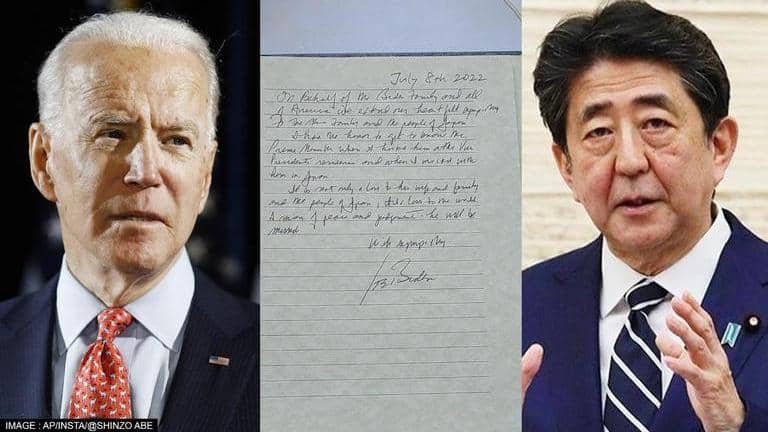 July 8th 2022
On Behalf of the Biden Family and all
of America we extend our heartfelt sympathy
to the Abe Family and the people of Japan
I had the honor to get to know the
Prime Minister when I hosted him at the Vice
Presidents residence and when I visited with
him in Japan
It is not only a loss to his wife and family
and the people of Japan, its a loss to the world.
A man of peace and judgment - he will be
missed
With sympathy
Biden
IMAGE : AP/INSTA/@SHINZO ABE